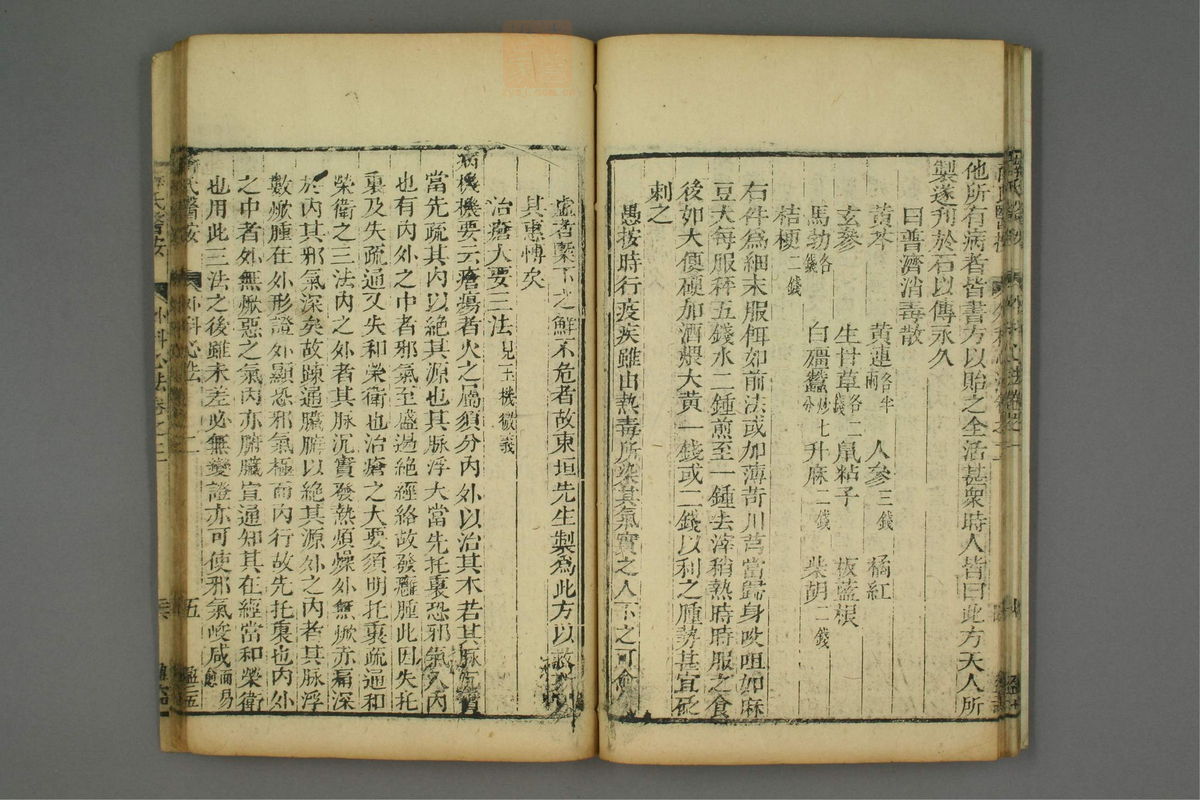 他所有病者皆書方以貽之全活甚衆時人皆曰此方天人所
製遂刊於石以傳永久
曰普濟消毒散
黃芩 黃連各半兩 人參三錢 橘紅
玄參 生甘草各二錢 鼠粘子 板藍根
馬勃各錢 白殭蠶炒七分 升麻二錢 柴胡二錢
桔梗二錢
右件爲細末服餌如前法或加薄荷川芎當歸身㕮咀如麻
豆大每服秤五錢水二鍾煎至一鍾去滓稍熱時時服之食
後如大便硬加酒煨大黃一錢或二錢以利之腫勢甚宜砭
刺之
愚按時行疫疾雖由熱毒所染其氣實之人下之可愈
虛者緊下之鮮不危者故東垣先生製爲此方以救
其惠愽矣
治瘡大要三法見玉機微義
病機機要云瘡瘍者火之屬須分內外以治其木若其脉沉實
當先疏其內以絶其源也其脉浮大當先托裏恐邪氣入內
也有內外之中者邪氣至盛遏絶經絡故發癰腫此因失托
裏及失疏通又失和榮衛也治瘡之大要須明托裏疏通和
榮衛之三法內之外者其脉沉實發熱煩燥外無焮赤痛深
於內其邪氣深矣故踈通臟腑以絶其源外之內者其脉浮
數焮腫在外形證外顯恐邪氣極而內行故先托裏也內外
之中者外無焮惡之氣內亦腑臟宣通知其在經當和榮衛
也用此三法之後雖未差必無變證亦可使邪氣峻減而易愈
薛氏醫按 外科心法 卷之二 五